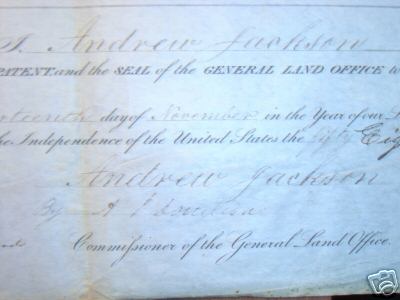 I, Andrew Jackson
PATENT, and the SEAL of the GENERAL LAND OFFICE to
day of November in the Year of our L
the Independence of the United States the fifty Eig
Andrew Jackson
By A J Donelson
Commissioner of the General Land Office.
eBay